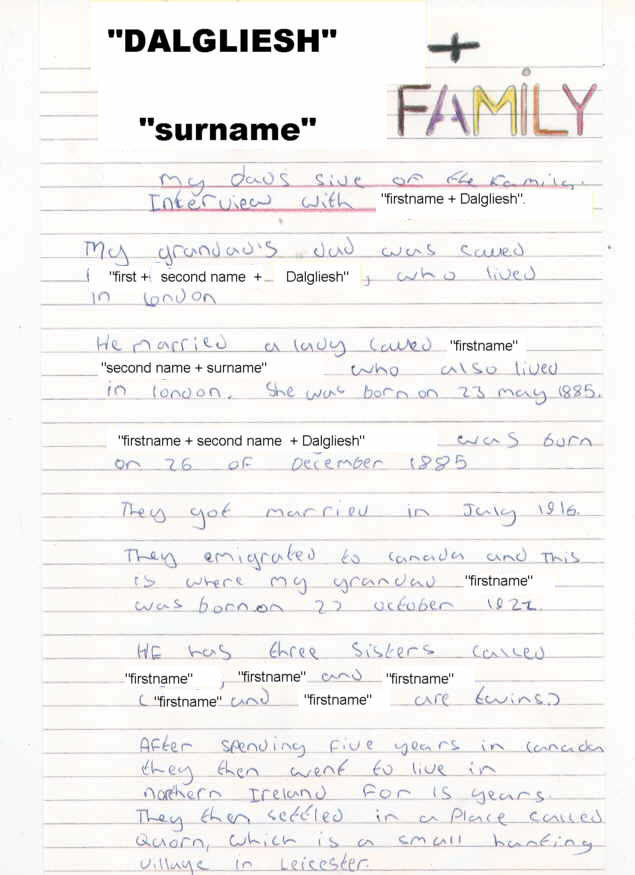 "DALGLIESH" +
"surname" FAMILY
My dads side of the family.
Interview with "firstname + Dalgliesh".
My grandad's dad was called
"first + second name + Dalgliesh", who lived
in london
He married a lady called "firstname"
"second name + surname" who also lived
in london. She was born on 23 may 1885.
"firstname + second name + Dalgliesh" was born
on 26 of December 1885
They got married in July 1916.
They emigrated to canada and This
is where my grandad "firstname"
was born on october 1922.
HE has three sisters called
"firstname", "firstname" and "firstname"
("firstname" and "firstname" are twins.)
After spending five years in canada
they then went to live in
northern Ireland for 15 years.
They then settled in a place called
Quorn, which is a small hunting
village in Leicester.